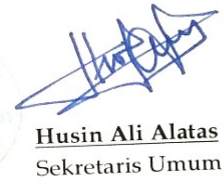 Husin Ali Alatas
Sekretaris Umum